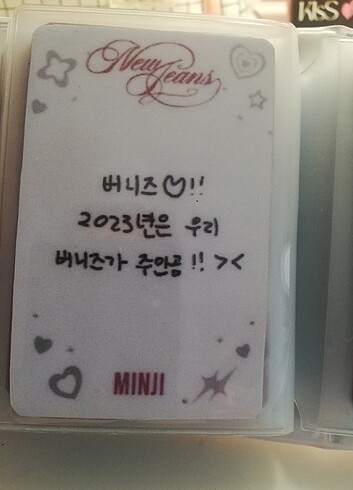 KISS
New
Jeans
버니즈♡!!
2023년은 우리
버니즈가 주인공!! ><
MINJI